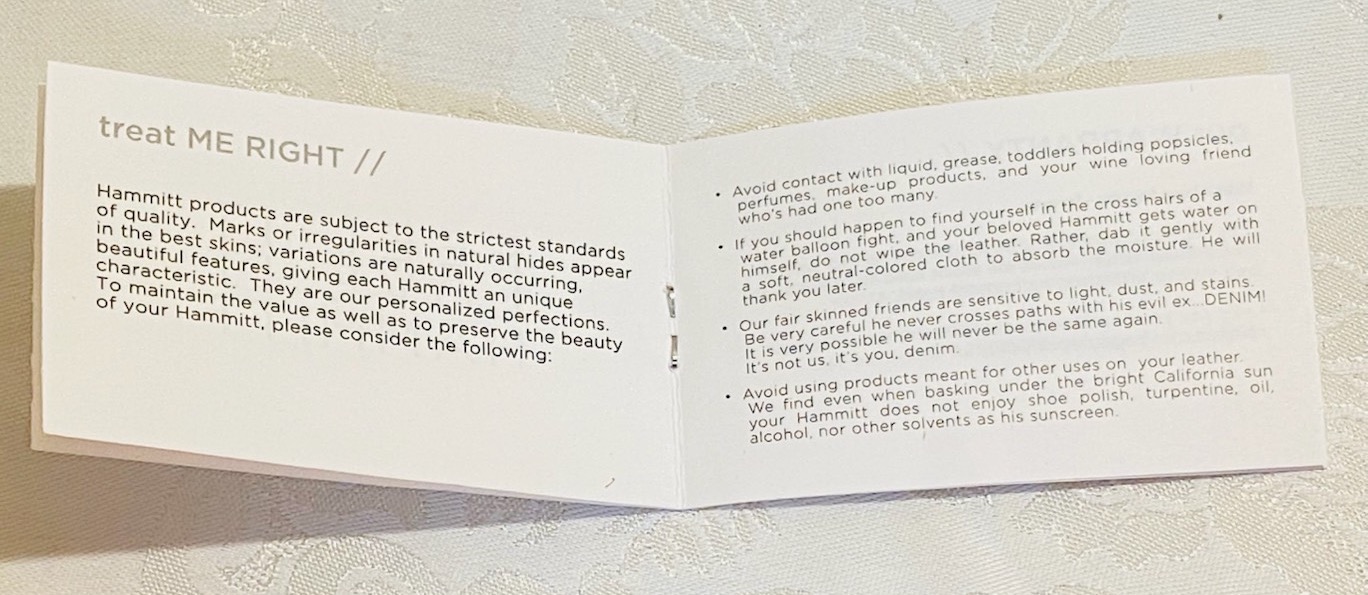 treat ME RIGHT //
Hammitt products are subject to the strictest standards
of quality. Marks or irregularities in natural hides appear
in the best skins; variations are naturally occurring,
beautiful features, giving each Hammitt an unique
characteristic. They are our personalized perfections.
To maintain the value as well as to preserve the beauty
of your Hammitt, please consider the following:
• Avoid contact with liquid, grease, toddlers holding popsicles,
perfumes, make-up products, and your wine loving friend
who's had one too many.
• If you should happen to find yourself in the cross hairs of a
water balloon fight, and your beloved Hammitt gets water on
himself, do not wipe the leather. Rather, dab it gently with
a soft, neutral-colored cloth to absorb the moisture. He will
thank you later.
• Our fair skinned friends are sensitive to light, dust, and stains.
Be very careful he never crosses paths with his evil ex...DENIM!
It is very possible he will never be the same again.
It's not us, it's you, denim.
• Avoid using products meant for other uses on your leather.
We find even when basking under the bright California sun
your Hammitt does not enjoy shoe polish, turpentine, oil,
alcohol, nor other solvents as his sunscreen.